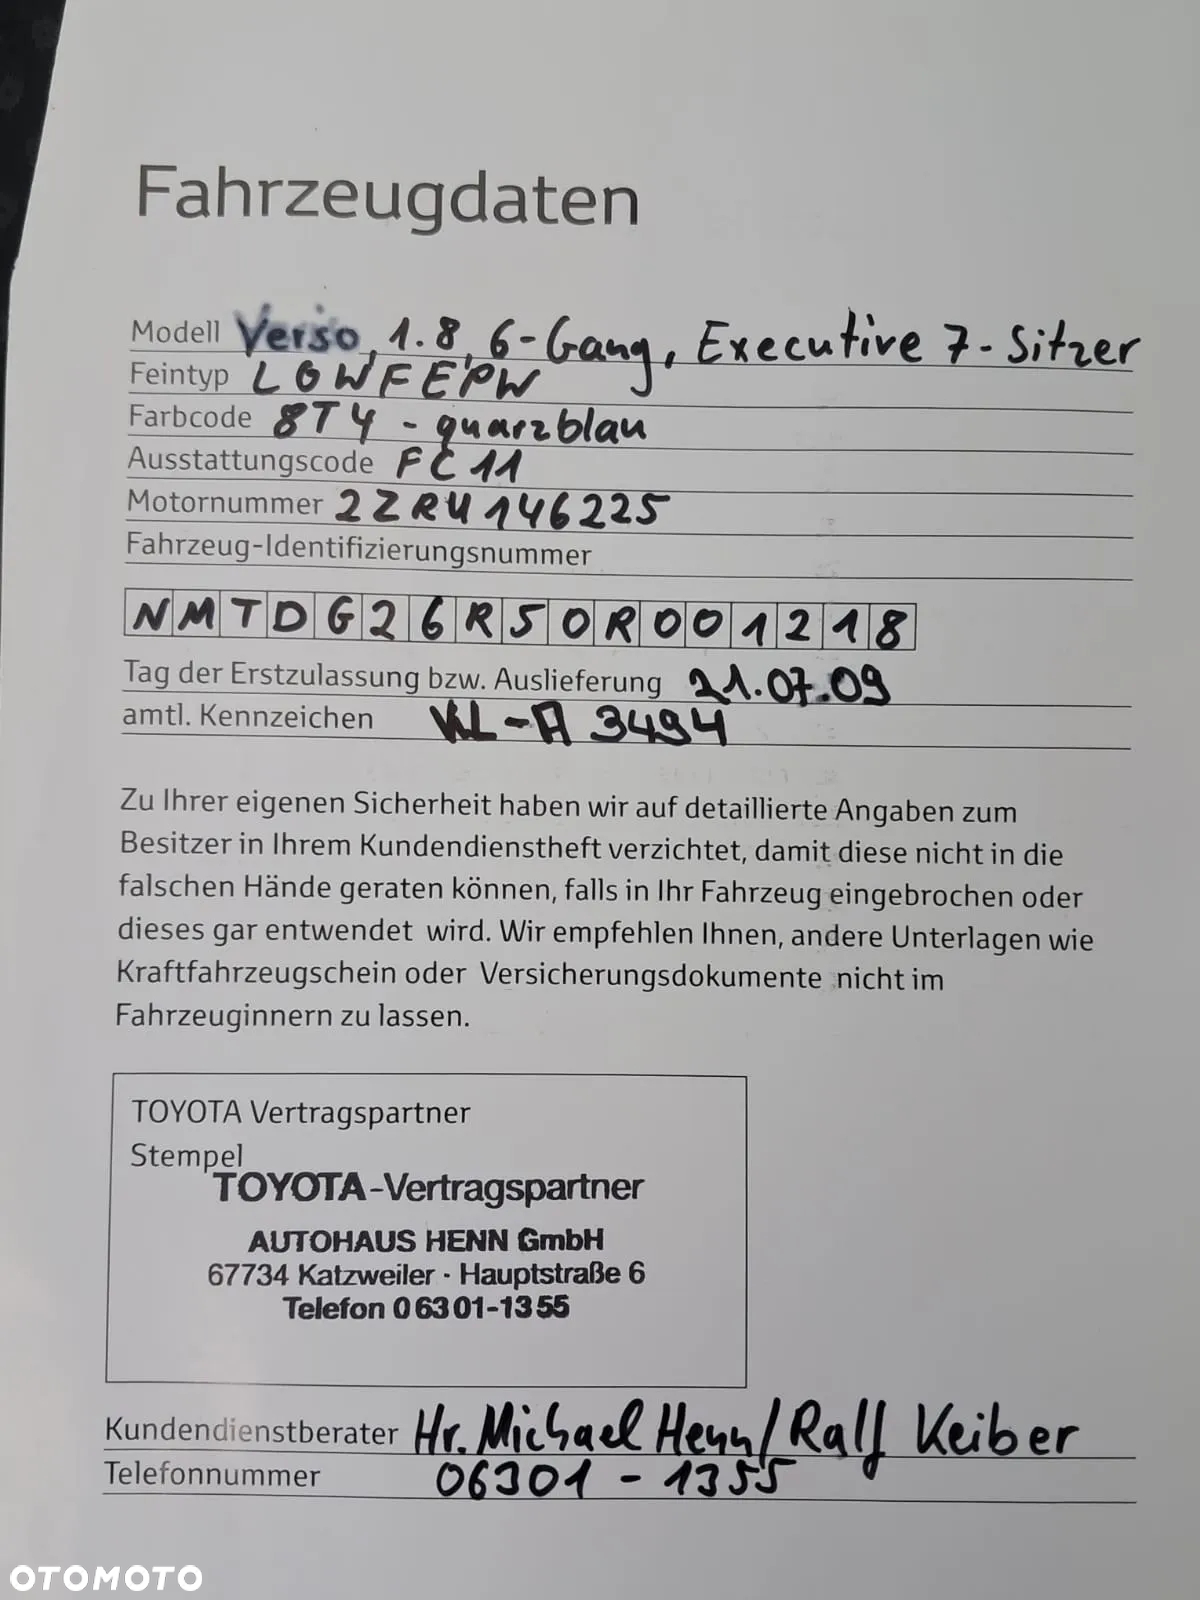 Fahrzeugdaten
Modell Verso, 1.8, 6-Gang, Executive 7-Sitzer
Feintyp LGWFEPW
Farbcode 8T4 - quarzblau
Ausstattungscode FC11
Motornummer 2ZRU146225
Fahrzeug-Identifizierungsnummer
NMTDG26R50R001218
Tag der Erstzulassung bzw. Auslieferung 21.07.09
amtl. Kennzeichen KL-A 3494
Zu Ihrer eigenen Sicherheit haben wir auf detaillierte Angaben zum
Besitzer in Ihrem Kundendienstheft verzichtet, damit diese nicht in die
falschen Hände geraten können, falls in Ihr Fahrzeug eingebrochen oder
dieses gar entwendet wird. Wir empfehlen Ihnen, andere Unterlagen wie
Kraftfahrzeugschein oder Versicherungsdokumente nicht im
Fahrzeuginnern zu lassen.
TOYOTA Vertragspartner
Stempel
TOYOTA-Vertragspartner
AUTOHAUS HENN GmbH
67734 Katzweiler · Hauptstraße 6
Telefon 06301-1355
Kundendienstberater Hr. Michael Henn/Ralf Keiber
Telefonnummer 06301 - 1355
OTOMOTO